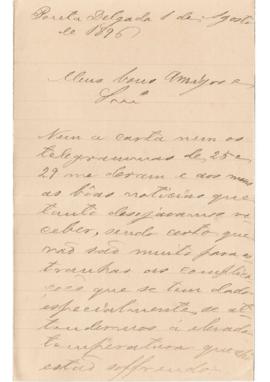 Ponta Delgada 1 de Agosto
de 1896
Meus bons Amigos e
Snrs
Nem a carta nem os
telegrammas de 25 e
29 me deram e aos meus
as bôas noticias que
tanto desejavamos re
ceber, sendo certo que
não são muito para es
tranhar as complica
ções que se tem dado,
especialmente se at
tendermos à elevada
temperatura que
estão soffrendo.